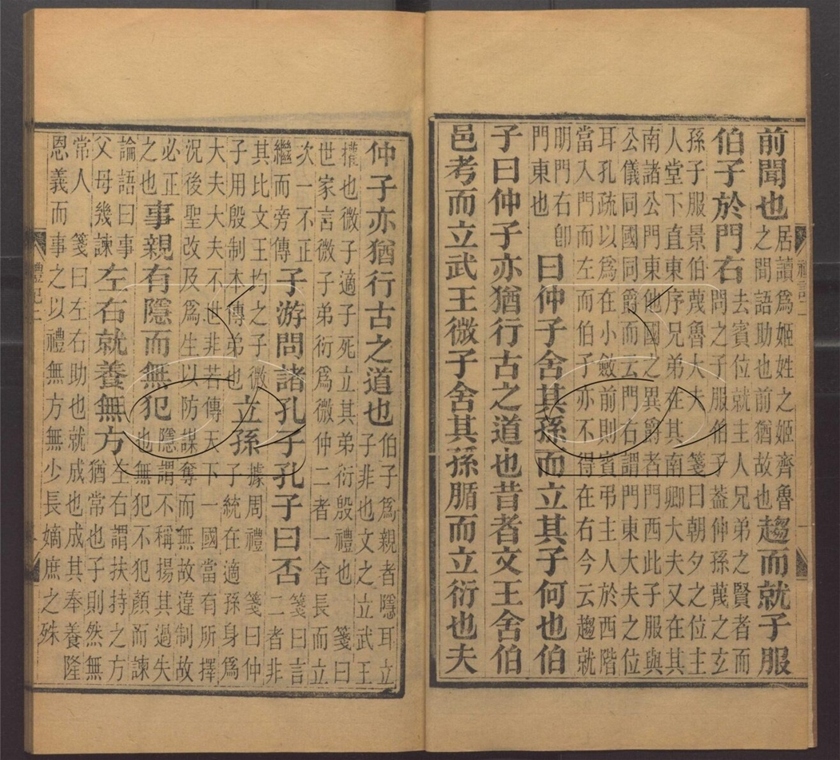 前聞也居讀為姬姓之姬齊魯之間語助也前猶故也趨而就子服
伯子於門右去賓位就主人兄弟之賢者而問之子服伯子蓋仲孫蔑之玄
孫子服景伯蔑魯大夫 箋曰朝夕之位主
人堂下直東序兄弟在其南卿大夫又在其
南諸公門東他國之異爵者門西此子服與
公儀同國同爵而云門右謂門東大夫之位
耳孔疏以為在小斂前則賓弔主人於西階
當入門而左而伯子亦不得在右今云趨就
明門右卽門東也 曰仲子舍其孫而立其子何也伯
子曰仲子亦猶行古之道也昔者文王舍伯
邑考而立武王微子舍其孫腯而立衍也夫
仲子亦猶行古之道也伯子為親者隱耳立子非也文之立武王
權也微子適子死立其弟衍殷禮也 箋曰
世家言微子弟衍為微仲二者一舍長而立
次一不正繼而旁傳子游問諸孔子孔子曰否箋曰言二者非
其比文王均之子微子用殷制本傳弟也立孫據周禮 箋曰仲子統在適孫身為
大夫大夫不世非若傳天下一國當有所擇
況後聖改及為生以防謀奪而無故違制故
必正之也事親有隱而無犯隱謂不稱揚其過失也無犯不犯顏而諫
論語曰事父母幾諫左右就養無方左右謂扶持之方猶常也子則然無
常人 箋曰左右助也就成也成其奉養隆
恩義而事之以禮無方無少長嫡庶之殊
禮記二